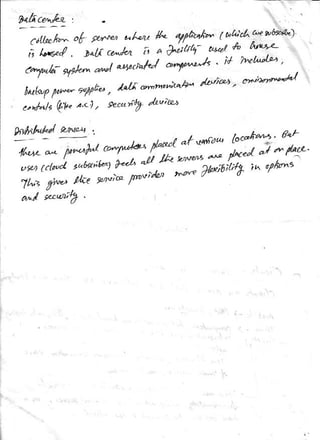 Data center :
collection of servers where the application (which are subscribed)
is housed. Data center is a facility used to house
computer system and associated components. it includes,
backup power supplies, data communication devices, environmental
controls (like A.C), security devices
Distributed servers :
these are powerful computers placed at various locations. But
user (cloud subscriber) feels all the servers are placed at one place.
This gives the service provider more flexibility in options
and security.